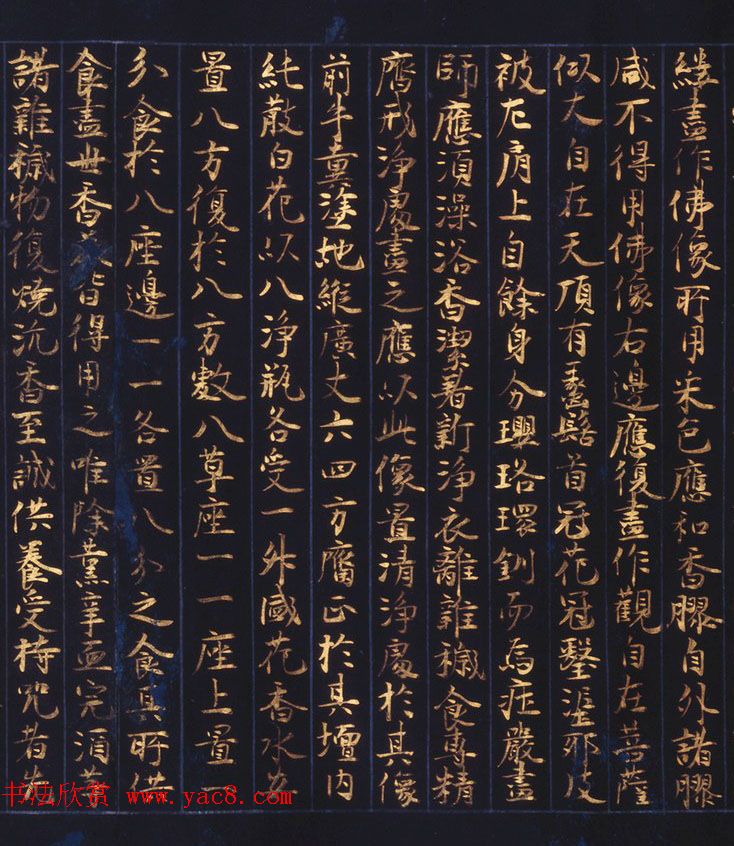 縷畫作佛像所用采色應和香膠自外諸膠
咸不得用佛像右邊應復畫作觀自在菩薩
似大自在天頂有螺髻首冠花冠翳泥耶皮
被左肩上自餘身分瓔珞環釧而為莊嚴畫
師應須澡浴香潔著新淨衣離雜穢食專精
齋戒淨處畫之應以此像置清淨處於其像
前牛糞塗地縱廣丈六四方齊正於其壇內
純散白花以八淨瓶各受一升盛花香水安
置八方復於八方敷八草座一一座上置一
分食於八座邊一一各置八分之食其所供
食盡世香美皆得用之唯除薰辛血肉酒等
諸雜穢物復燒沉香至誠供養受持咒者先
书法欣赏 www.yac8.com